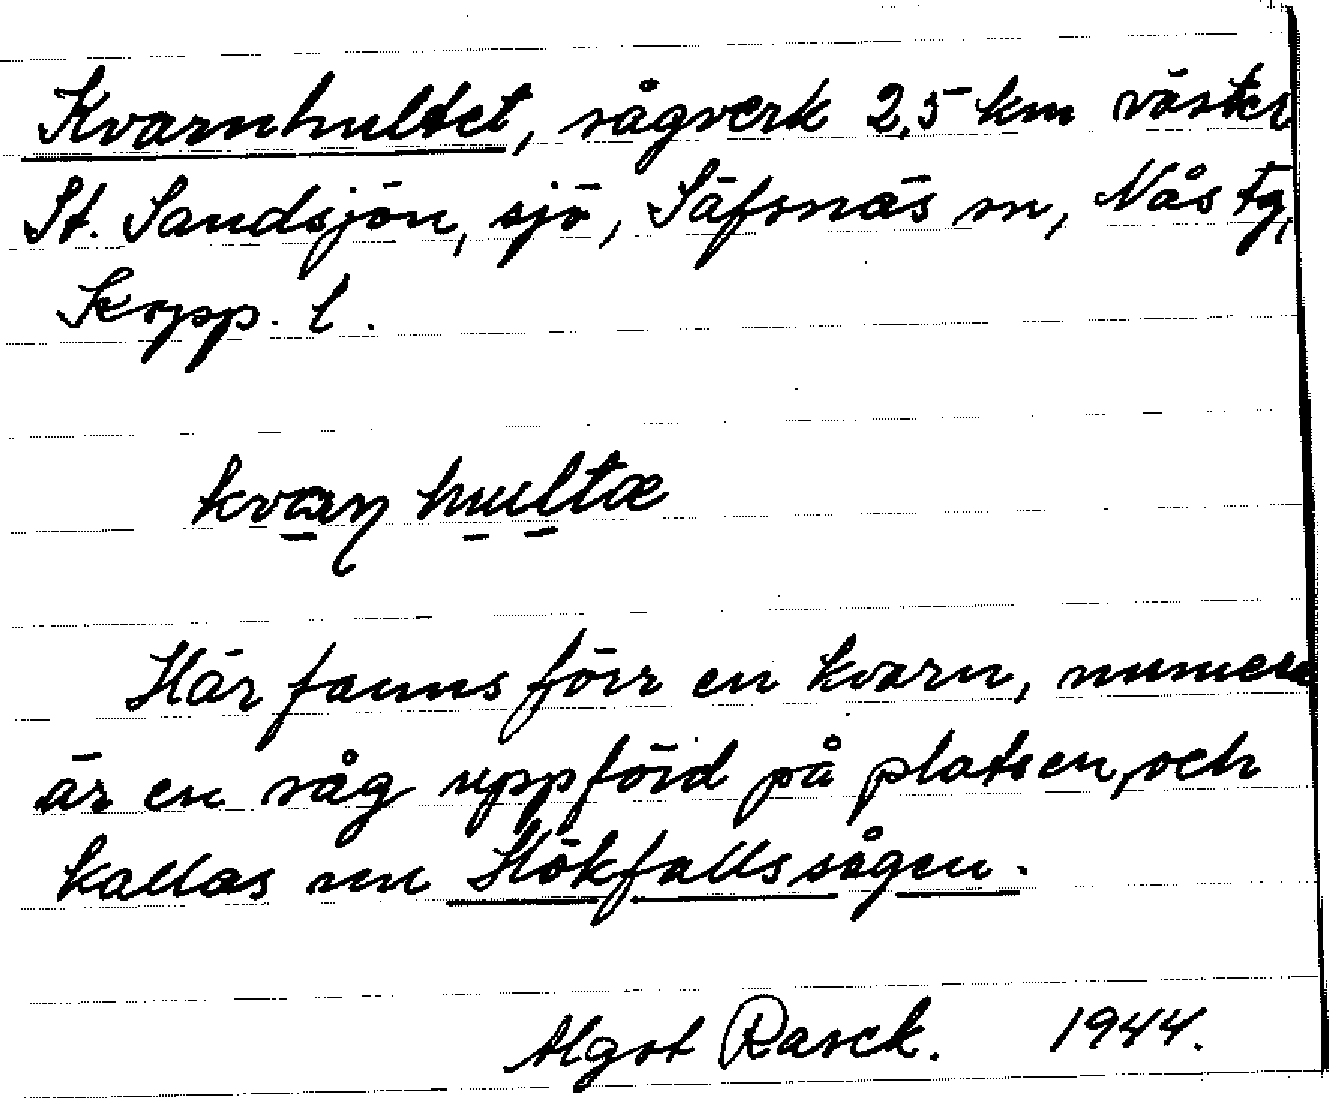 Kvarnhultet, sågverk 2,5 km väster
St. Sandsjön, sjö, Säfsnäs sn, Nås tg,
Kopp. l.
kvaɳ hultæ
Här fanns förr en kvarn, numera
är en såg uppförd på platsen, och
kallas nu Hökfallssågen.
Algot Rasck. 1944.